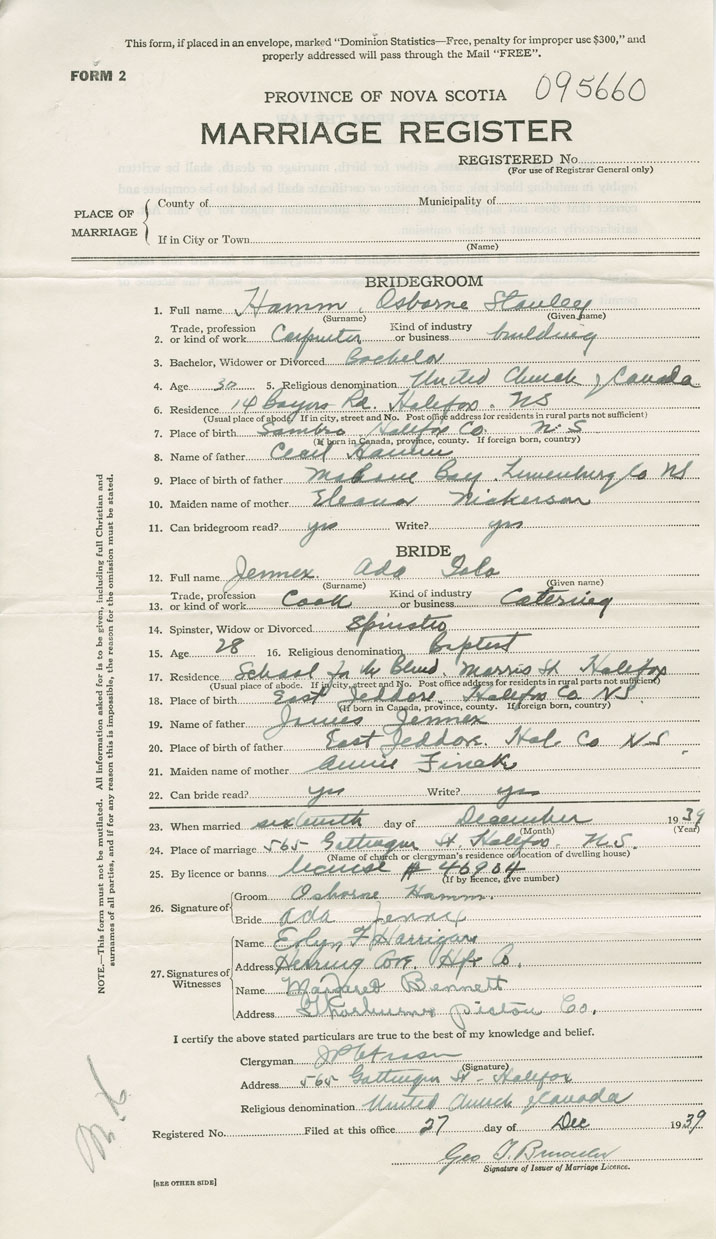 This form, if placed in an envelope, marked "Dominion Statistics—Free, penalty for improper use $300," and
properly addressed will pass through the Mail "FREE".
FORM 2
095660
PROVINCE OF NOVA SCOTIA
MARRIAGE REGISTER
REGISTERED No.
(For use of Registrar General only)
PLACE OF MARRIAGE
County of Municipality of
If in City or Town
(Name)
BRIDEGROOM
1. Full name Hamm, Osborne Stanley
(Surname) (Given name)
2. Trade, profession or kind of work Carpenter Kind of industry or business building
3. Bachelor, Widower or Divorced Bachelor
4. Age 30 5. Religious denomination United Church of Canada
6. Residence 14 Bayers Rd. Halifax. NS
(Usual place of abode. If in city, street and No. Post office address for residents in rural parts not sufficient)
7. Place of birth Sambro Halifax Co. N.S
(If born in Canada, province, county. If foreign born, country)
8. Name of father Cecil Hamm
9. Place of birth of father Mahone Bay. Lunenburg Co NS
10. Maiden name of mother Eleanor Nickerson
11. Can bridegroom read? yes Write? yes
BRIDE
12. Full name Jennex. Ada Iola
(Surname) (Given name)
13. Trade, profession or kind of work Cook Kind of industry or business Catering
14. Spinster, Widow or Divorced Spinster
15. Age 28 16. Religious denomination Baptist
17. Residence School for the Blind, Morris St Halifax
(Usual place of abode. If in city, street and No. Post office address for residents in rural parts not sufficient)
18. Place of birth East Jeddore. Halifax Co NS.
(If born in Canada, province, county. If foreign born, country)
19. Name of father James Jennex
20. Place of birth of father East Jeddore. Hal Co NS.
21. Maiden name of mother Annie
22. Can bride read? yes Write? yes
23. When married day of December 1939
(Month) (Year)
24. Place of marriage 565 Gottingen St. Halifax. N.S.
(Name of church or clergyman's residence or location of dwelling house)
25. By licence or banns license # 46904
(If by licence, give number)
26. Signature of
Groom Osborne Hamm.
Bride Ada Jennex
27. Signatures of Witnesses
Name F Harrigan
Address Herring Cove. Hfx Co.
Name Margaret Bennett
Address Thorburn Pictou Co.
I certify the above stated particulars are true to the best of my knowledge and belief.
Clergyman
(Signature)
Address 565 Gottingen St - Halifax
Religious denomination United Church of Canada
Registered No. Filed at this office 27 day of Dec 1939
Geo T.
Signature of Issuer of Marriage Licence.
[SEE OTHER SIDE]
NOTE.—This form must not be mutilated. All information asked for is to be given, including full Christian and
surnames of all parties, and if for any reason this is impossible, the reason for the omission must be stated.